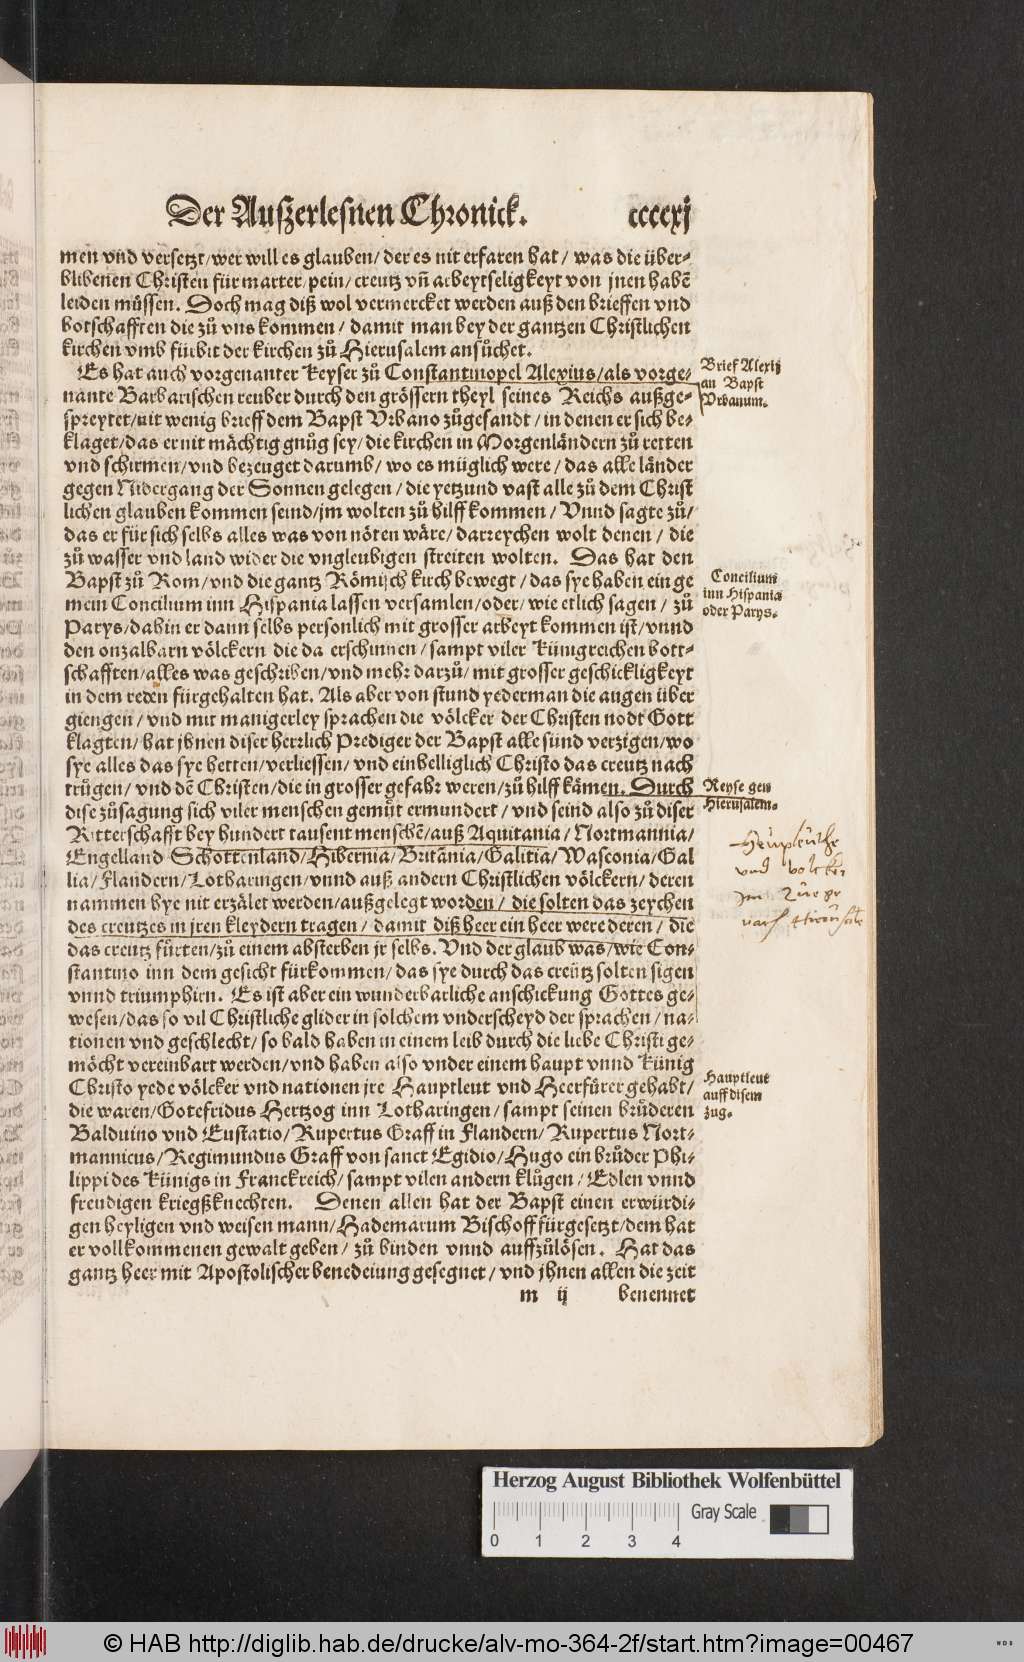 Der Auszerlesnen Chronick. ccccxj
men vnd versetzt/wer will es glauben/der es nit erfaren hat/was die über-
blibenen Christen für marter/pein/creutz vñ arbeytseligkeyt von jnen habē
leiden müssen. Doch mag diß wol vermercket werden auß den brieffen vnd
botschafften die zů vns kommen/damit man bey der gantzen Christlichen
kirchen vmb fürbit der kirchen zů Hierusalem ansůchet.
Es hat auch vorgenanter Keyser zů Constantinopel Alexius/als vorge-
nante Barbarischen reuber durch den grössern theyl seines Reichs außge-
spreytet/nit wenig brieff dem Bapst Vrbano zůgesandt/in denen er sich be-
klaget/das er nit mächtig gnůg sey/die kirchen in Morgenländern zů retten
vnd schirmen/vnd bezeuget darumb/wo es müglich were/das alle länder
gegen Nidergang der Sonnen gelegen/die yetzund vast alle zů dem Christ
lichen glauben kommen seind/jm wolten zů hilff kommen/Vnnd sagte zů/
das er für sich selbs alles was von nöten wäre/darreychen wolt denen/die
zů wasser vnd land wider die vngleubigen streiten wolten. Das hat den
Bapst zů Rom/vnd die gantz Römisch kirch bewegt/das sye haben ein ge
mein Concilium inn Hispania lassen versamlen/oder/wie etlich sagen/zů
Parys/dahin er dann selbs personlich mit grosser arbeyt kommen ist/vnnd
den onzalbarn völckern die da erschinnen/sampt viler Künigreichen bott-
schafften/alles was geschriben/vnd mehr darzů/mit grosser geschickligkeyt
in dem reden fürgehalten hat. Als aber von stund yederman die augen über
giengen/vnd mit manigerley sprachen die völcker der Christen nodt Gott
klagten/hat jhnen diser herrlich Prediger der Bapst alle sünd verzigen/wo
sye alles das sye hetten/verliessen/vnd einhelliglich Christo das creutz nach
trůgen/vnd dē Christen/die in grosser gefahr weren/zů hilff kämen. Durch
dise zůsagung sich viler menschen gemüt ermundert/vnd seind also zů diser
Ritterschafft bey hundert tausent menschē/auß Aquitania/Nortmannia/
Engelland Schottenland/Hibernia/Britānia/Galitia/Wasconia/Gal
lia/Flandern/Lotharingen/vnnd auß andern Christlichen völckern/deren
nammen hye nit erzälet werden/außgelegt worden/die solten das zeychen
des creutzes in jren kleydern tragen/damit diß heer ein heer were deren/die
das creutz fürten/zů einem absterben jr selbs. Vnd der glaub was/wie Con-
stantino inn dem gesicht fürkommen/das sye durch das creütz solten sigen
vnnd triumphirn. Es ist aber ein wunderbarliche anschickung Gottes ge-
wesen/das so vil Christliche glider in solchem vnderscheyd der sprachen/na-
tionen vnd geschlecht/so bald haben in einem leib durch die liebe Christi ge-
möcht vereinbart werden/vnd haben also vnder einem haupt vnnd Künig
Christo yede völcker vnd nationen jre Hauptleut vnd Heerfürer gehabt/
die waren/Gotefridus Hertzog inn Lotharingen/sampt seinen brüderen
Balduino vnd Eustatio/Rupertus Graff in Flandern/Rupertus Nort-
mannicus/Regimundus Graff von sanct Egidio/Hugo ein brůder Phi-
lippi des Künigs in Franckreich/sampt vilen andern klůgen/Edlen vnnd
freudigen kriegßknechten. Denen allen hat der Bapst einen erwürdi-
gen heyligen vnd weisen mann/Hademarum Bischoff fürgesetzt/dem hat
er vollkommenen gewalt geben/zů binden vnnd auffzůlösen. Hat das
gantz heer mit Apostolischer benedeiung gesegnet/vnd jhnen allen die zeit
m ij benennet
Brief Alexij
an Bapst
Vrbanum.
Concilium
inn Hispania
oder Parys.
Reyse gen
Hierusalem.
Heuptleuthe
vnd volcker
Im Zuege
nach
Hauptleut
auff disem
zug.
Herzog August Bibliothek Wolfenbüttel
0 1 2 3 4
Gray Scale
© HAB http://diglib.hab.de/drucke/alv-mo-364-2f/start.htm?image=00467